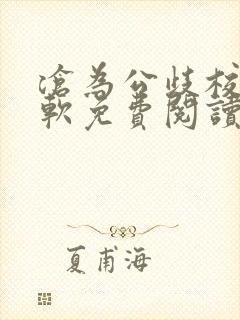 滄為公歧校
軟免費閱讀
夏甫海